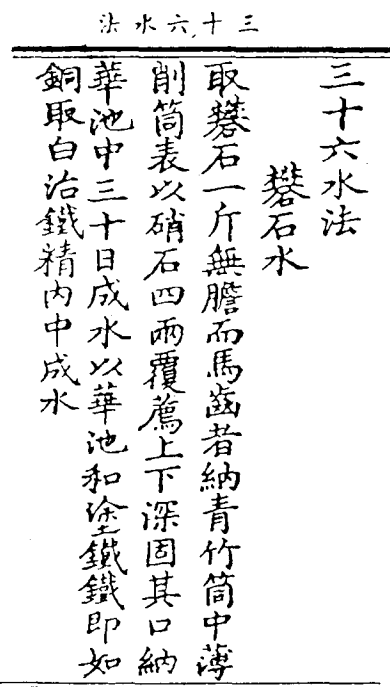 三十六水法
三十六水法
礬石水
取礬石一斤無膽而馬齒者納青竹筒中薄
削筒表以硝石四兩覆薦上下深固其口納
華池中三十日成水以華池和塗鐵鐵即如
銅取白治鐵精內中成水